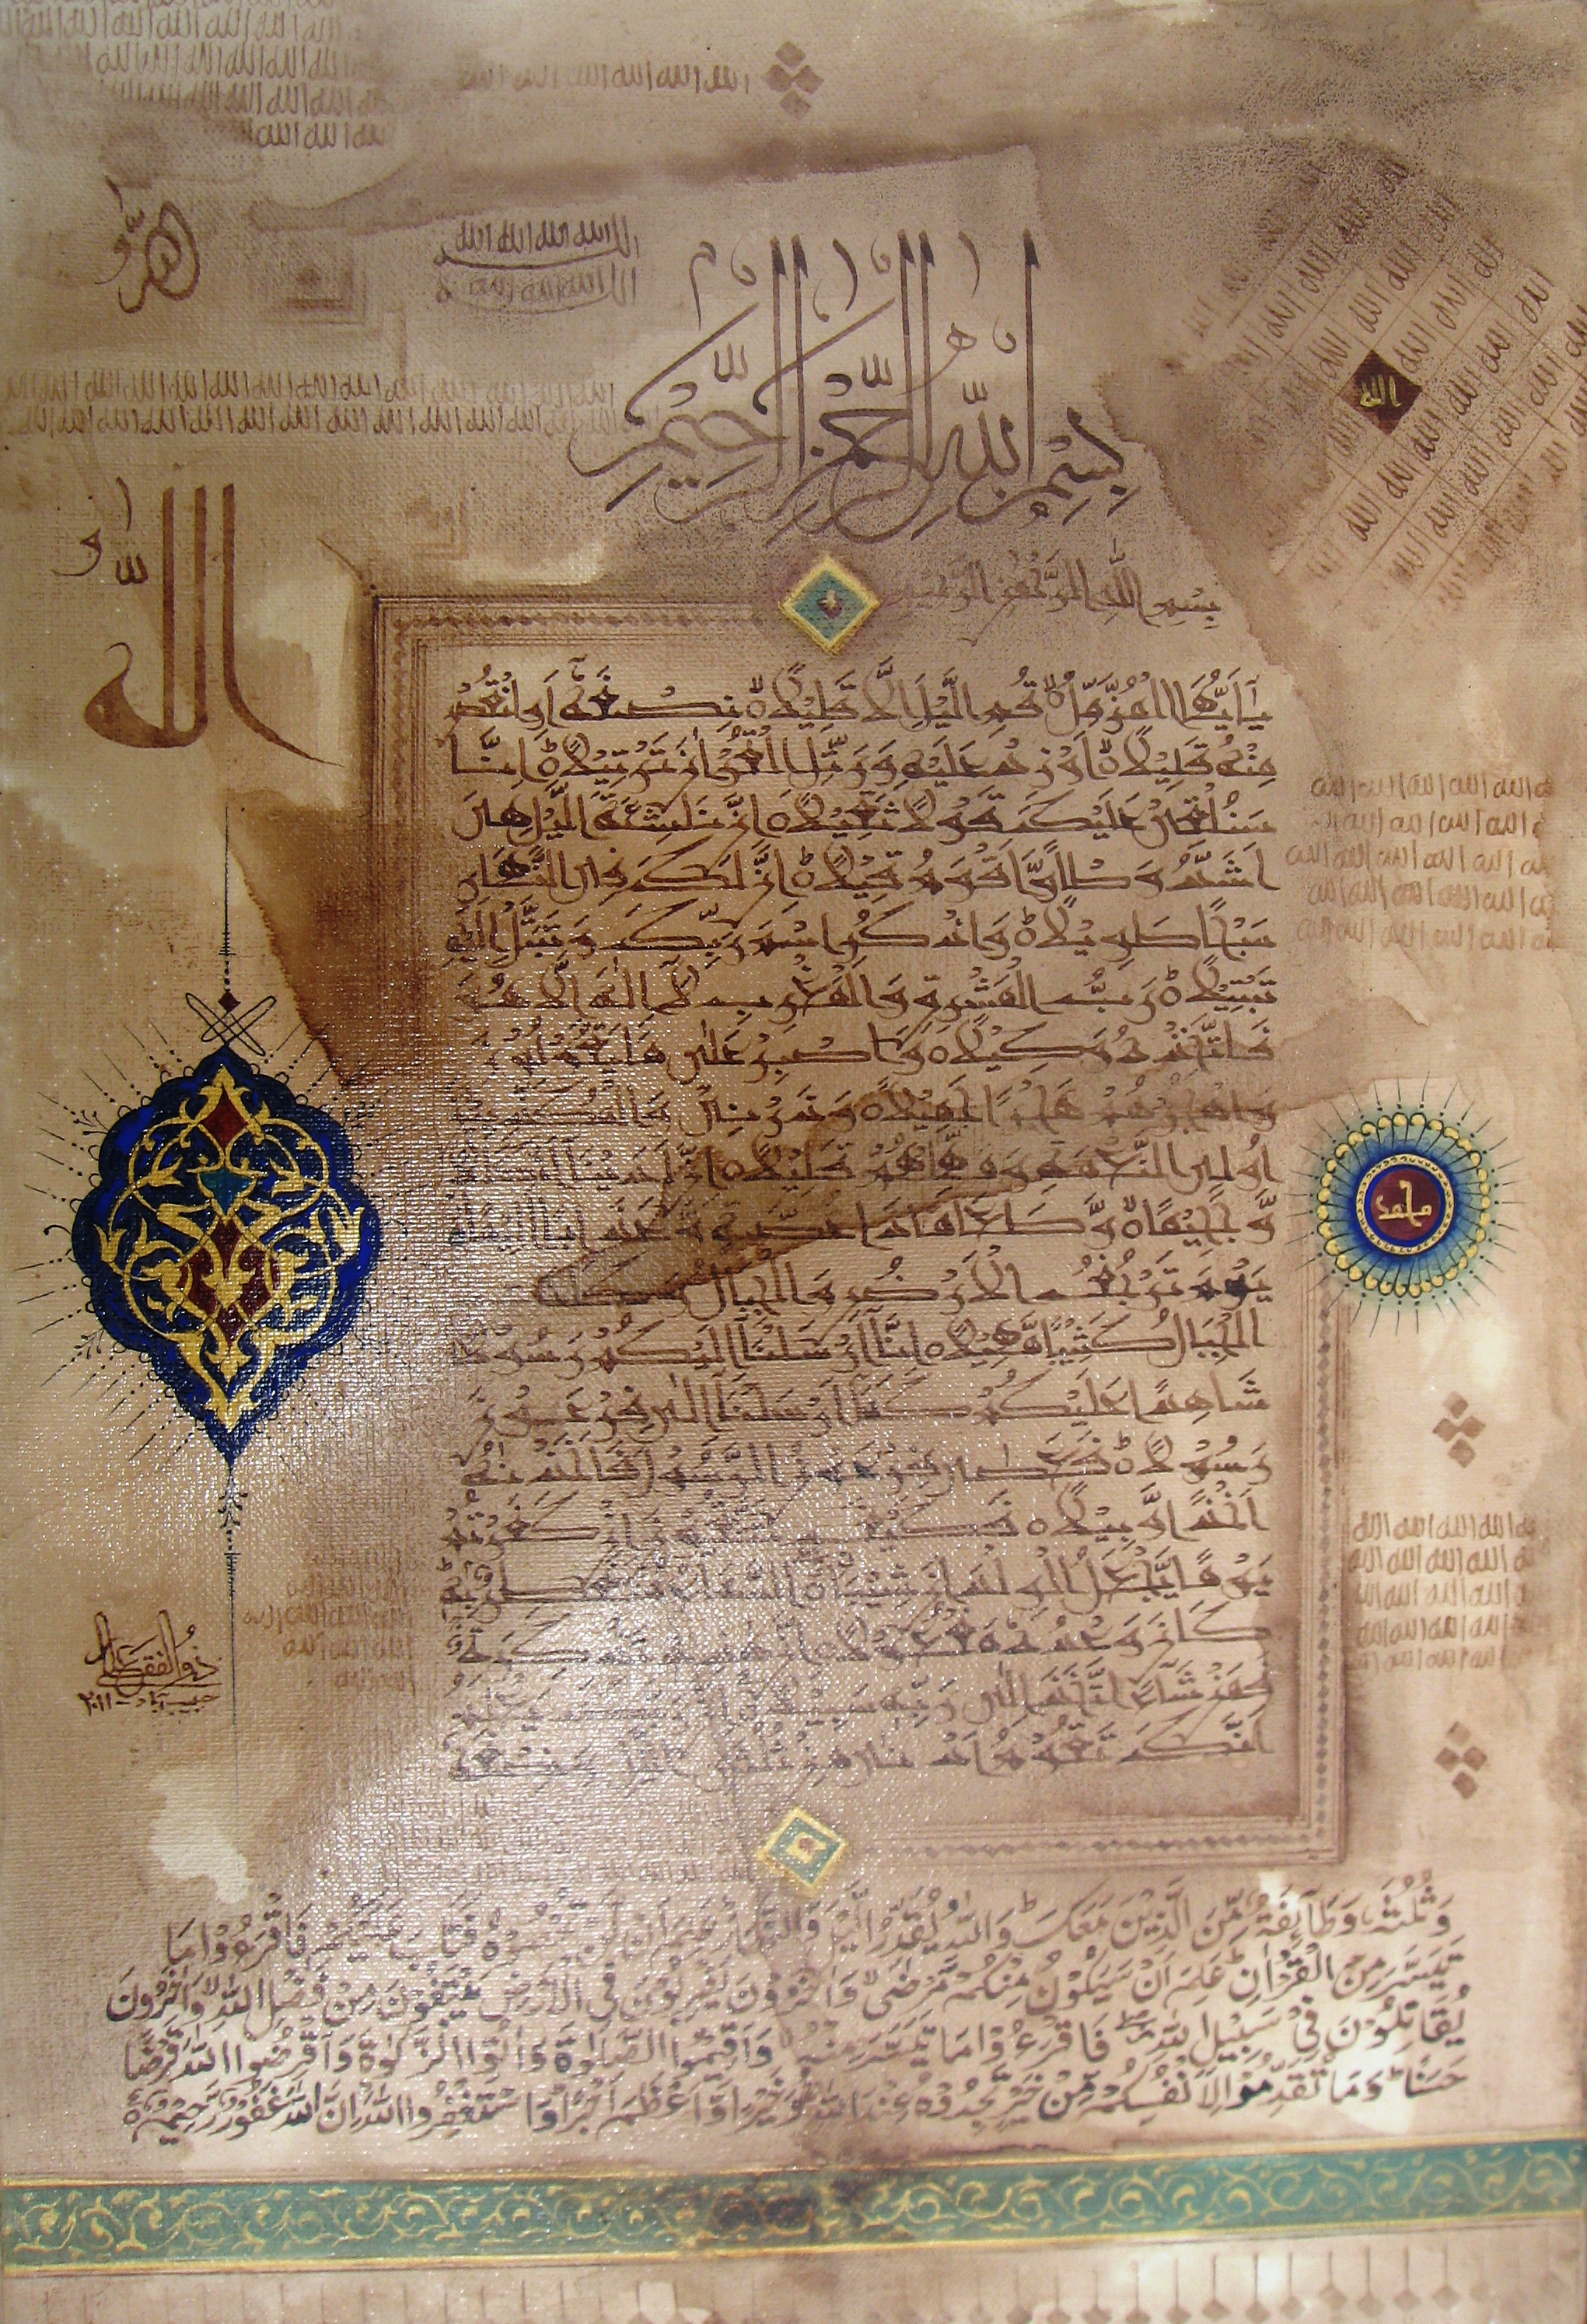 بِسْمِ اللهِ الرَّحْمٰنِ الرَّحِيْمِ
الله
الله
بِسْمِ اللهِ الرَّحْمٰنِ الرَّحِيْمِ
يٰٓاَيُّهَا الْمُزَّمِّلُ ۙ قُمِ الَّيْلَ اِلَّا قَلِيْلًا ۙ نِّصْفَهٗٓ اَوِ انْقُصْ
مِنْهُ قَلِيْلًا ۙ اَوْ زِدْ عَلَيْهِ وَرَتِّلِ الْقُرْاٰنَ تَرْتِيْلًا ؕ اِنَّا
سَنُلْقِيْ عَلَيْكَ قَوْلًا ثَقِيْلًا ۝ اِنَّ نَاشِئَةَ الَّيْلِ هِيَ
اَشَدُّ وَطْاً وَّاَقْوَمُ قِيْلًا ؕ اِنَّ لَكَ فِي النَّهَارِ
سَبْحًا طَوِيْلًا ؕ وَاذْكُرِ اسْمَ رَبِّكَ وَتَبَتَّلْ اِلَيْهِ
تَبْتِيْلًا ؕ رَبُّ الْمَشْرِقِ وَالْمَغْرِبِ لَآ اِلٰهَ اِلَّا هُوَ
فَاتَّخِذْهُ وَكِيْلًا ۝ وَاصْبِرْ عَلٰى مَا يَقُوْلُوْنَ
وَاهْجُرْهُمْ هَجْرًا جَمِيْلًا ۝ وَذَرْنِيْ وَالْمُكَذِّبِيْنَ
اُولِي النَّعْمَةِ وَمَهِّلْهُمْ قَلِيْلًا ۝ اِنَّ لَدَيْنَآ اَنْكَالًا
وَّجَحِيْمًا ۙ وَّطَعَامًا ذَا غُصَّةٍ وَّعَذَابًا اَلِيْمًا
يَوْمَ تَرْجُفُ الْاَرْضُ وَالْجِبَالُ وَكَانَتِ
الْجِبَالُ كَثِيْبًا مَّهِيْلًا ۝ اِنَّآ اَرْسَلْنَآ اِلَيْكُمْ رَسُوْلًا
شَاهِدًا عَلَيْكُمْ كَمَآ اَرْسَلْنَآ اِلٰى فِرْعَوْنَ
رَسُوْلًا ؕ فَعَصٰى فِرْعَوْنُ الرَّسُوْلَ فَاَخَذْنٰهُ
اَخْذًا وَّبِيْلًا ۝ فَكَيْفَ تَتَّقُوْنَ اِنْ كَفَرْتُمْ
يَوْمًا يَّجْعَلُ الْوِلْدَانَ شِيْبَا ۝ السَّمَآءُ مُنْفَطِرٌ بِهٖ
كَانَ وَعْدُهٗ مَفْعُوْلًا ۝ اِنَّ هٰذِهٖ تَذْكِرَةٌ
فَمَنْ شَآءَ اتَّخَذَ اِلٰى رَبِّهٖ سَبِيْلًا ۝ اِنَّ رَبَّكَ يَعْلَمُ
اَنَّكَ تَقُوْمُ اَدْنٰى مِنْ ثُلُثَيِ الَّيْلِ وَنِصْفَهٗ
محمد
وَثُلُثَهٗ وَطَآئِفَةٌ مِّنَ الَّذِيْنَ مَعَكَ ؕ وَاللهُ يُقَدِّرُ الَّيْلَ وَالنَّهَارَ عَلِمَ اَنْ لَّنْ تُحْصُوْهُ فَتَابَ عَلَيْكُمْ فَاقْرَءُوْا مَا
تَيَسَّرَ مِنَ الْقُرْاٰنِ ؕ عَلِمَ اَنْ سَيَكُوْنُ مِنْكُمْ مَّرْضٰى ۙ وَاٰخَرُوْنَ يَضْرِبُوْنَ فِي الْاَرْضِ يَبْتَغُوْنَ مِنْ فَضْلِ اللهِ ۙ وَاٰخَرُوْنَ
يُقَاتِلُوْنَ فِيْ سَبِيْلِ اللهِ فَاقْرَءُوْا مَا تَيَسَّرَ مِنْهُ ۙ وَاَقِيْمُوا الصَّلٰوةَ وَاٰتُوا الزَّكٰوةَ وَاَقْرِضُوا اللهَ قَرْضًا
حَسَنًا ؕ وَمَا تُقَدِّمُوْا لِاَنْفُسِكُمْ مِّنْ خَيْرٍ تَجِدُوْهُ عِنْدَ اللهِ هُوَ خَيْرًا وَّاَعْظَمَ اَجْرًا وَاسْتَغْفِرُوا اللهَ اِنَّ اللهَ غَفُوْرٌ رَّحِيْمٌ